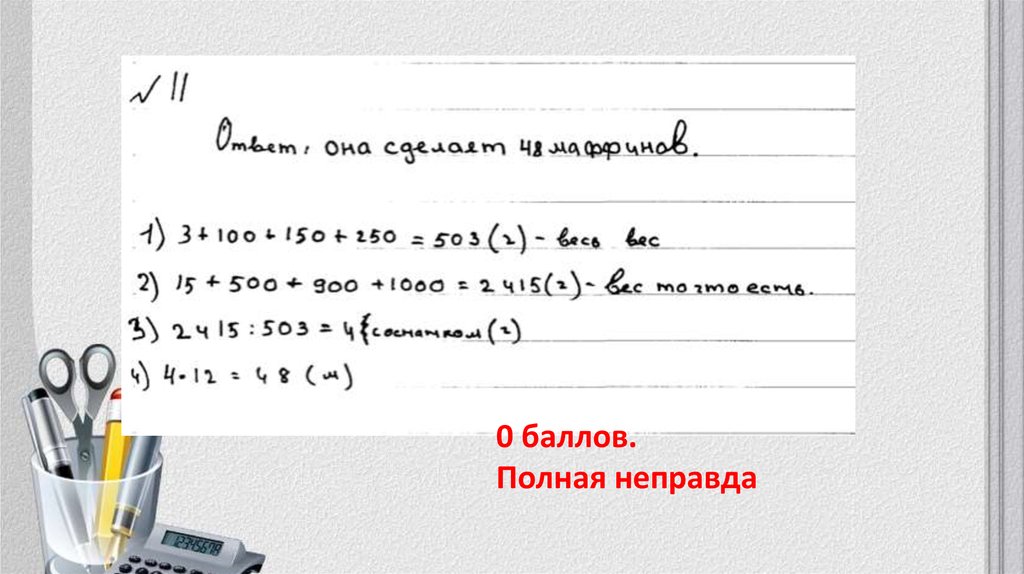 √ 11
Ответ: она сделает 48 маффинов.
1) 3 + 100 + 150 + 250 = 503 (г) - весь вес
2) 15 + 500 + 900 + 1000 = 2415 (г) - вес то что есть.
3) 2415 : 503 = 4 {состатком (г)
4) 4 · 12 = 48 (м)
0 баллов.
Полная неправда
12345678